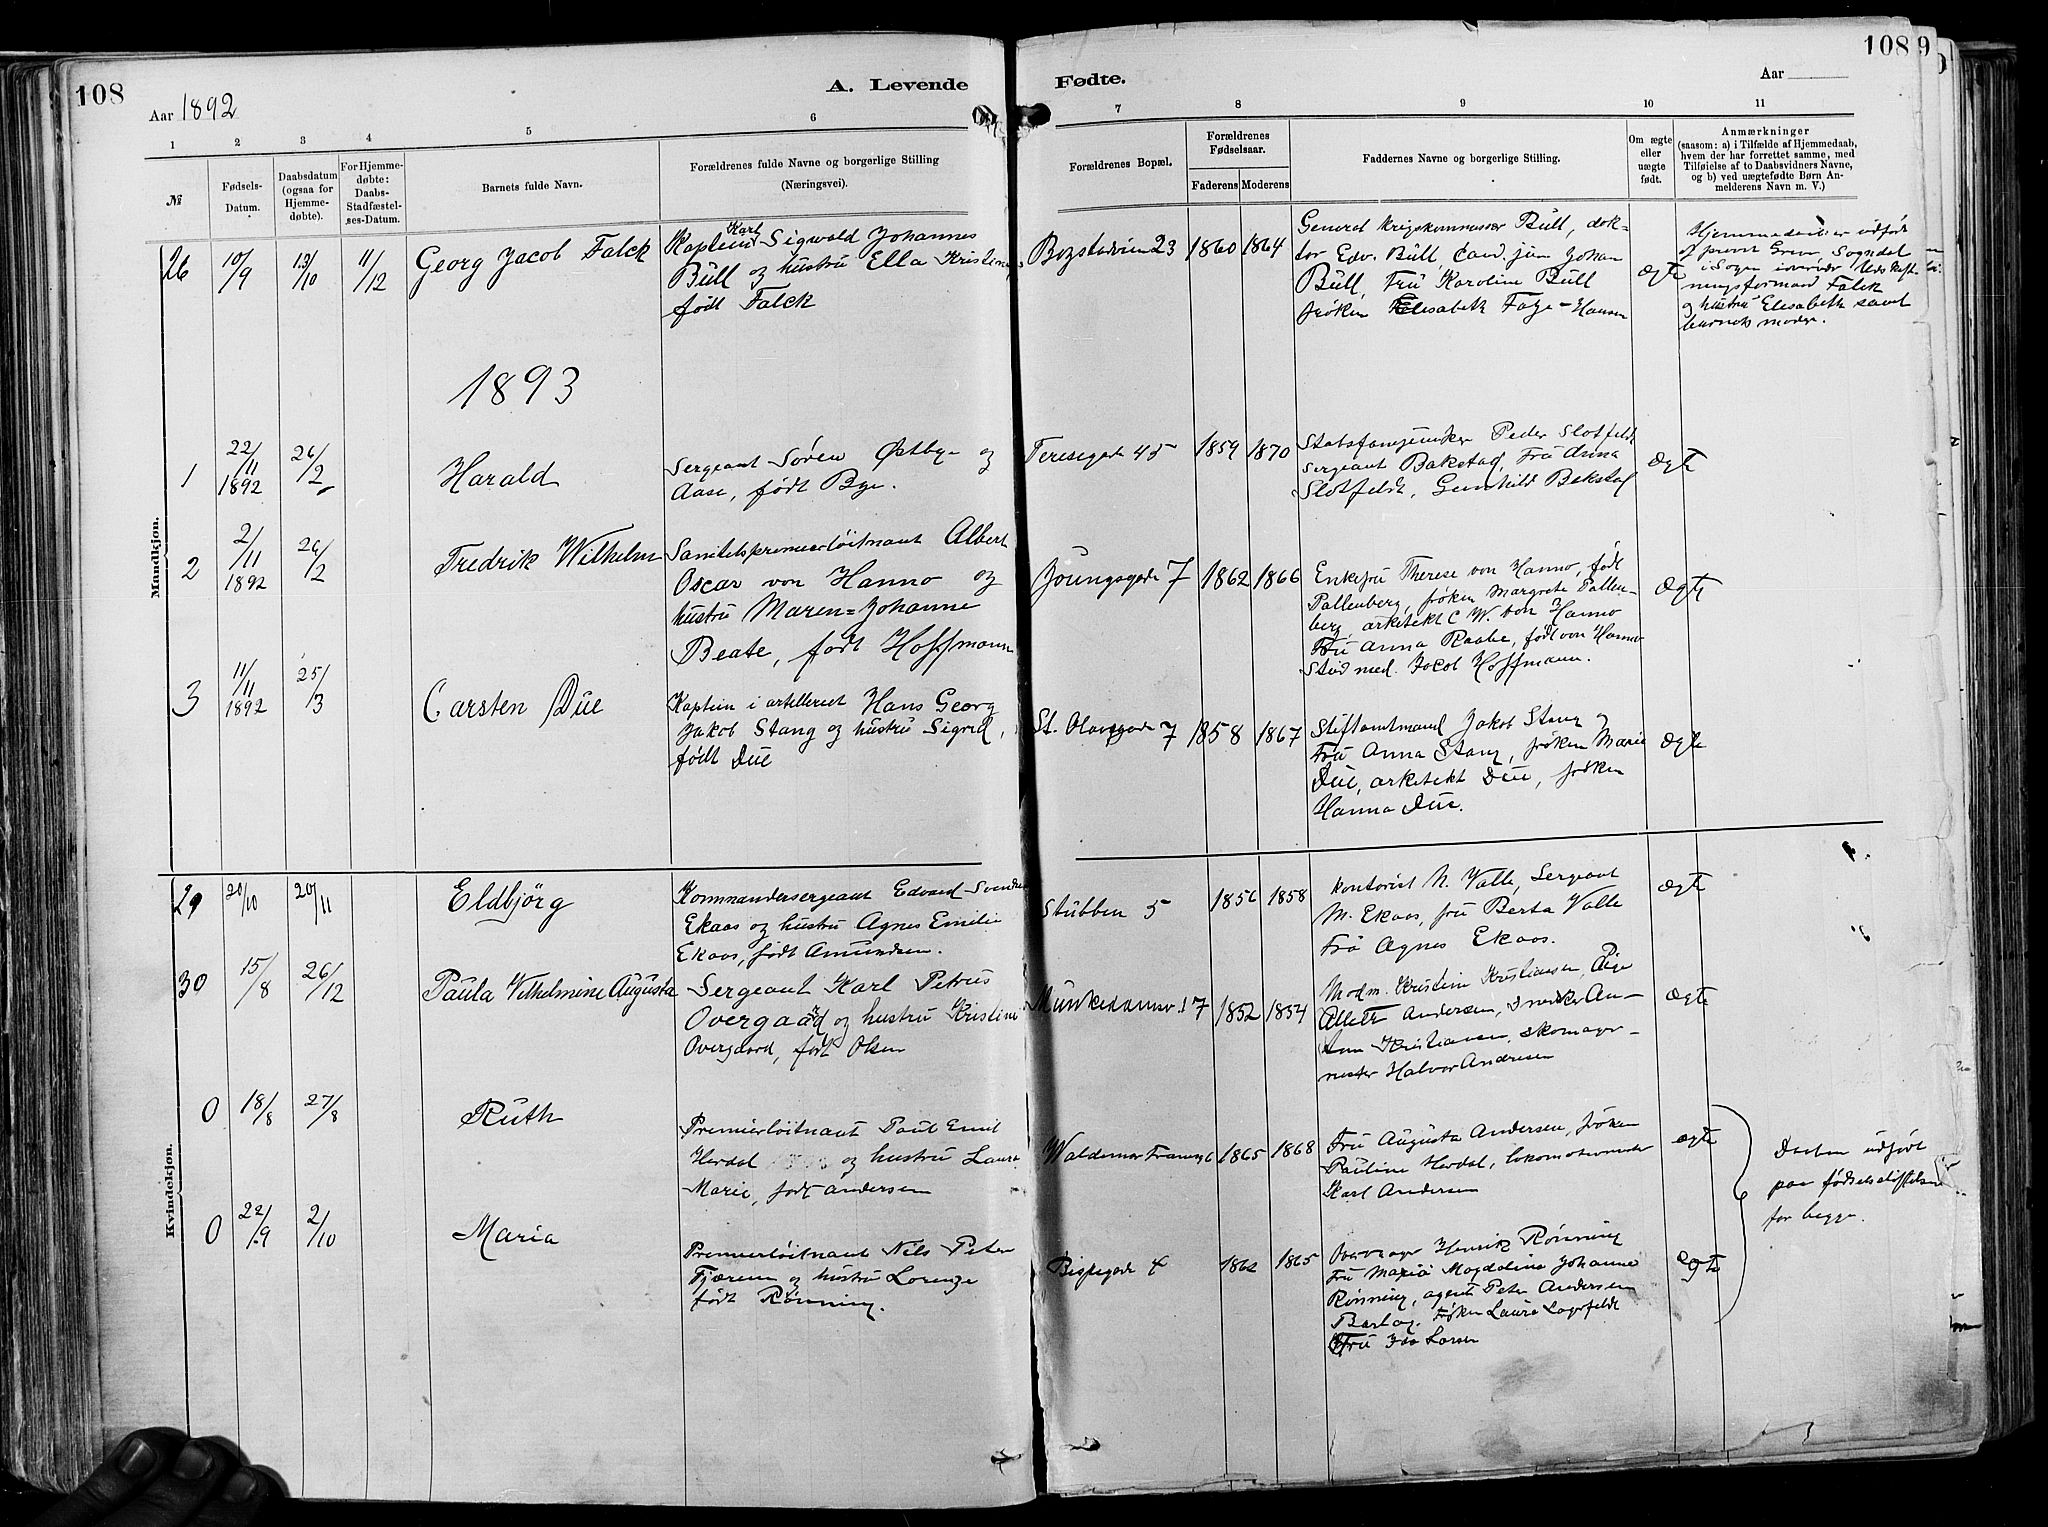 108
Aar 1892
A. Levende
Fødte.
Aar
108 9
1 2 3 4 5 6 7 8 9 10 11
№
Fødsels-
Datum.
Daabsdatum
(ogsaa for
Hjemme-
døbte).
For Hjemme-
døbte:
Daabs-
Stadfæstel-
ses-Datum.
Barnets fulde Navn.
Forældrenes fulde Navne og borgerlige Stilling
(Næringsvei).
Forældrenes Bopæl.
Forældrenes
Fødselsaar.
Faderens Moderens
Faddernes Navne og borgerlige Stilling.
Om ægte
eller
uægte
født.
Anmærkninger
(saasom: a) i Tilfælde af Hjemmedaab,
hvem der har forrettet samme, med
Tilføielse af to Daabsvidners Navne,
og b) ved uægtefødte Børn An-
melderens Navn m. V.)
Mandkjøn.
26 10/9 13/10 11/12 Georg Jacob Falck
Karl
Kaptein Sigwald Johannes
Bull og hustru Ella Kristine
født Falck
23 1860 1864
General krigskommissær Bull, dok-
tor Edv. Bull, Cand. jur Johan
Bull, Fru Karoline Bull
frøken Elisabeth Faye-Hansen
ægte
Hjemmedaaben er udført
af provst Sogndal
i Sogn
ningsformand Falck
og hustru Elisabeth samt
barnets moder.
1893
1 22/11 1892 26/2 Harald
Sergeant Søren Østbye og
Aase, født Bye.
Teresegade 45 1859 1870
Peder Slotfeldt
sergeant Bakstad, Fru Anna
Slotfeldt, Gunhild Bakstad
ægte
2 2/11 1892 26/2 Fredrik Wilhelm
Sanitetspremierløitnant Albert
Oscar von Hanno og
hustru Maren=Johanne
Beate, født Hoffmann
Youngsgade 7 1862 1866
Enkefru Therese von Hanno, født
Pallenberg, frøken Margrete Pallen-
berg, arkitekt C W. von Hanno
Fru Anna Raabe, født von Hanno
Stud med. Jacob Hoffmann.
ægte
3 11/11 1892 25/3 Carsten Due
Kaptein i artilleriet Hans Georg
Jakob Stang og hustru Sigrid,
født Due
St. Olavsgade 7 1858 1867
Stiftamtmand Jakob Stang og
Fru Anna Stang, frøken Marie
Due, arkitekt Due, frøken
Hanna Due.
ægte
Kvindekjøn.
29 20/10 20/11 Eldbjörg
Kommandersergeant Edvard
Ekaas og hustru Agnes Emilie
Ekaas, født Amundsen.
Stubben 5 1856 1858
Kontorist N. Valle, Sergeant
M. Ekaas, fru Berta Valle
Fru Agnes Ekaas.
ægte
30 15/8 26/12 Paula Vilhelmine Augusta
Sergeant Karl Petrus
Overgaard og hustru Kristine
Overgaard, født Olsen
Munkedamsv. 17 1852 1854
Madm. Kristine Kristiansen, Pige
Andersen, Snedker An-
ton Kristiansen, skomager-
mester Halvor Andresen
ægte
0 18/8 27/8 Ruth
Premierløitnant Paul Emil
Herdal og hustru Laura
Marie, født Andersen
1865 1868
Fru Augusta Andersen, frøken
Pauline Herdal,
Karl Andersen
ægte
Daaben udført
paa fødselsstiftelsen
for begge.
0 22/9 2/10 Maria
Premierløitnant Nils Peter
og hustru
født Rønning.
Bispegade 4 1862 1865
Henrik Rønning
Fru Maria Magdalina Johanne
Rønning, agent Peter Andersen
Frøken Laura
Fru Ida Larsen
ægte